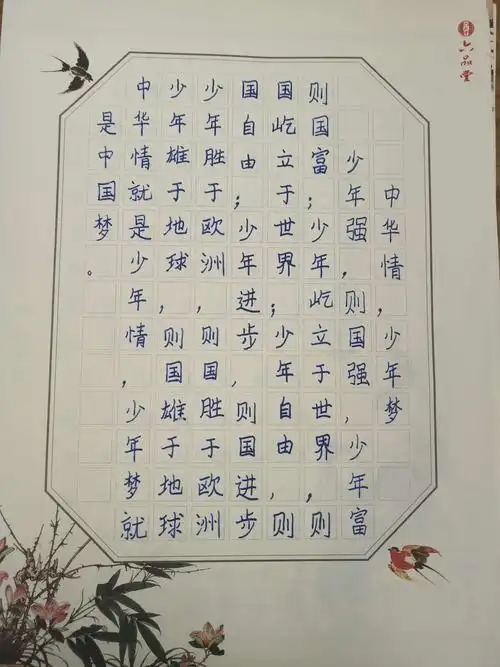 中华情，少年梦
少年强，则国强，少年富
则国富；少年，屹立于世界，则
国屹立于世界；少年自由，则
国自由；少年进步，则国进步
少年胜于欧洲，则国胜于欧洲
少年雄于地球，则国雄于地球
中华情就是少年情，少年梦就
是中国梦。
六品堂